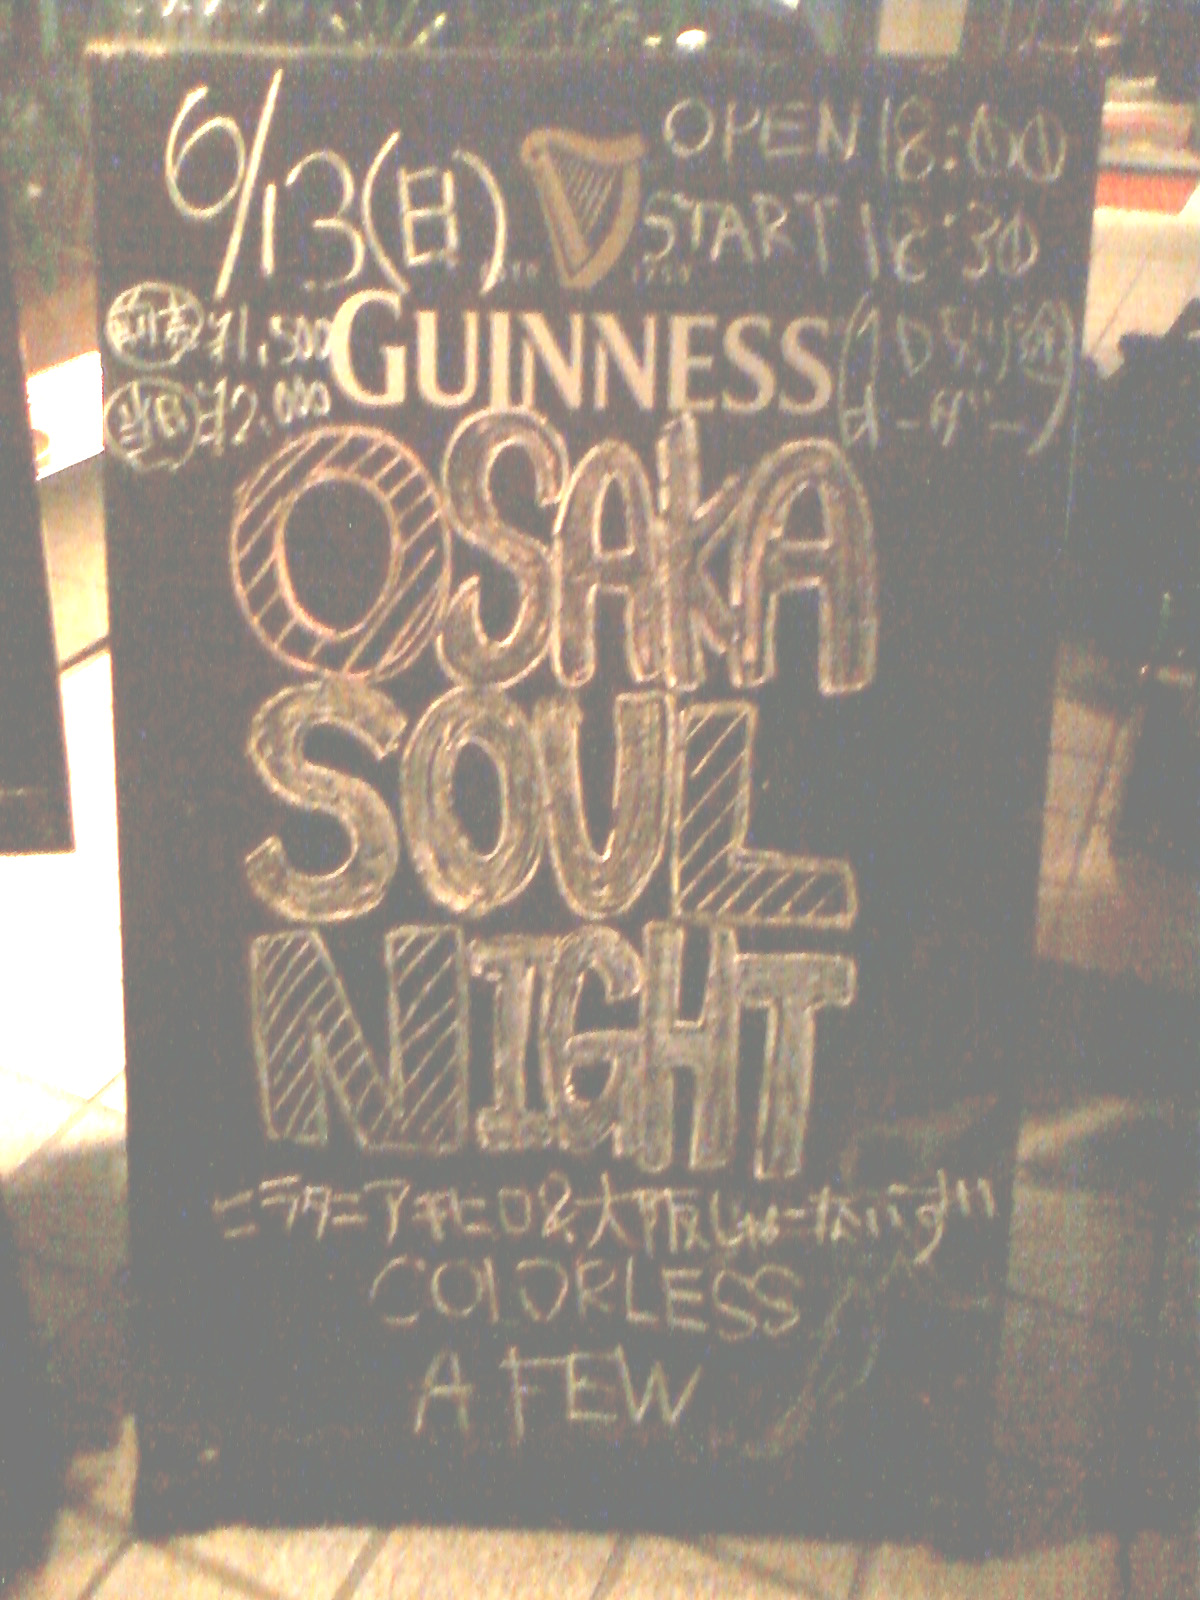 6/13(日)
OPEN 18:00
START 18:30
前売 ¥1,500
当日 ¥2,000
GUINNESS
(1Dﾖﾘ途
オーダー)
OSAKA
SOUL
NIGHT
ニラタニアキヒロ&大阪じゃーないず!!!
COLORLESS
A FEW